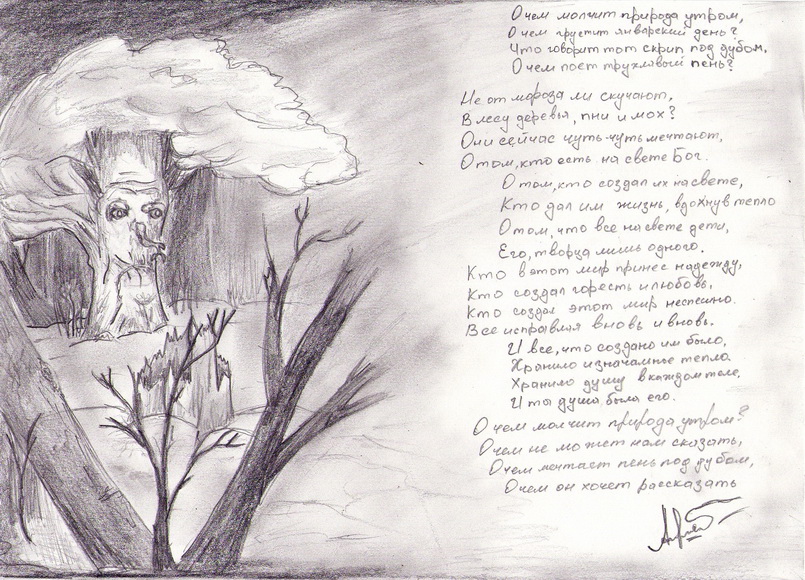 О чем молчит природа утром,
О чем грустит январский день?
Что говорит тот скрип под дубом,
О чем поет трухлявый пень?
Не от мороза ли скучают,
В лесу деревья, пни и мох?
Они сейчас чуть-чуть мечтают,
О том, кто есть на свете Бог.
О том, кто создал их на свете,
Кто дал им жизнь, вдохнув тепло
О том, что все на свете дети,
Его, творца лишь одного.
Кто в этот мир принес надежду,
Кто создал горесть и любовь,
Кто создал этот мир неспешно.
Все исправляя вновь и вновь.
И все, что создано им было,
Хранило изначальное тепло
Хранило душу в каждом теле,
И та душа была его.
О чем молчит природа утром?
О чем не может нам сказать,
О чем мечтает пень под дубом,
О чем он хочет рассказать